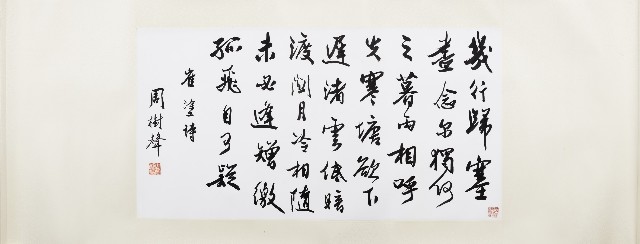 幾行歸塞
盡念尔獨何
之暮雨相呼
失寒塘欲下
遲渚雲低暗
渡関月冷相隨
未必逢矰繳
孤飛自可疑
崔塗詩
周樹聲